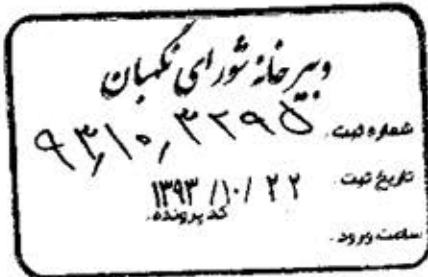 دبیرخانه شورای نگهبان
شماره ثبت: ۹۳٫۱۰٫۳۲۹۵
تاریخ ثبت: ۱۳۹۳/۱۰/۲۲
کد پرونده:
ساعت ورود: